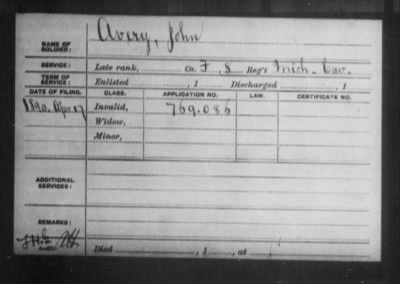 NAME OF SOLDIER: Avery, John
SERVICE: Late rank, Co. F, 8 Reg't Mich. Cav.
TERM OF SERVICE: Enlisted , 1 Discharged , 1
DATE OF FILING. CLASS. APPLICATION NO. LAW. CERTIFICATE NO.
1890. Apr. 27 Invalid, 769.086
Widow,
Minor,
ADDITIONAL SERVICES:
REMARKS:
Died , 1 , at